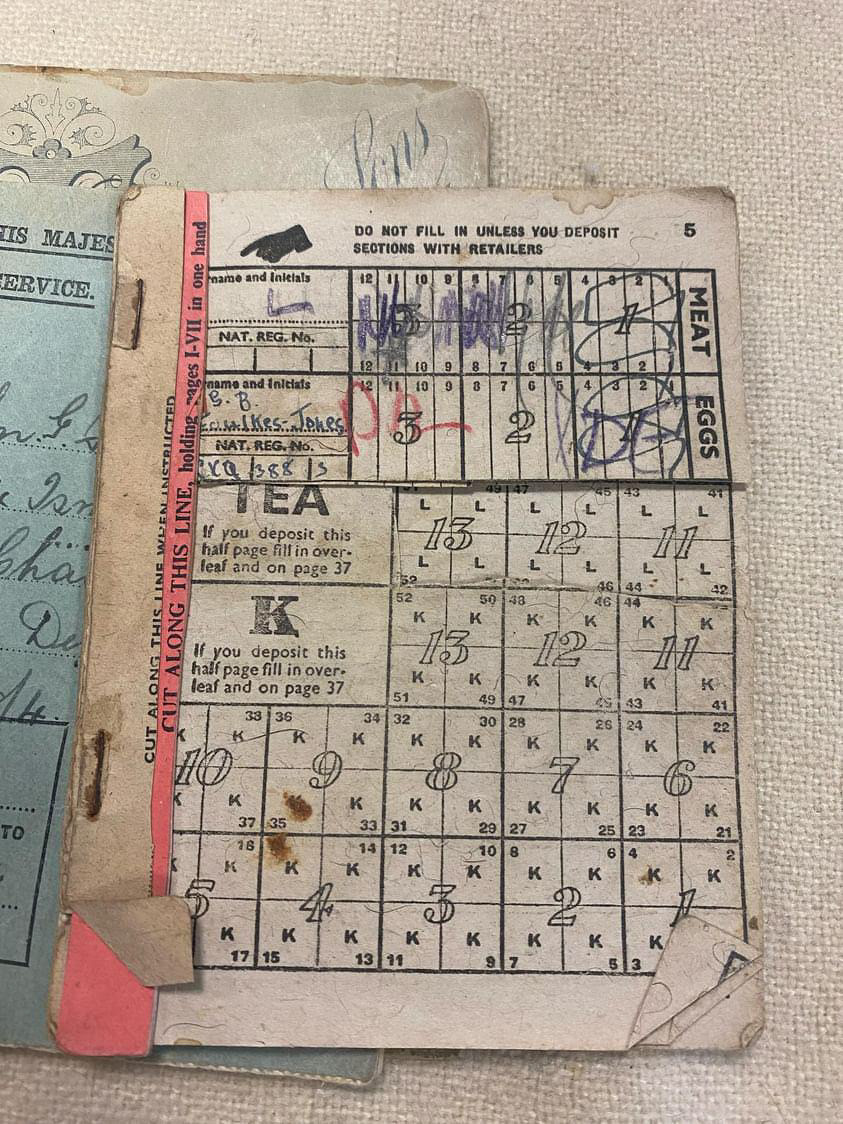 Sons
HIS MAJES
SERVICE.
TO
CUT ALONG THIS LINE WHEN INSTRUCTED
CUT ALONG THIS LINE, holding pages I-VII in one hand
DO NOT FILL IN UNLESS YOU DEPOSIT 5
SECTIONS WITH RETAILERS
name and Initials
12 11 10 9 8 7 6 5 4 3 2 1
3 2 1 MEAT
NAT. REG. No.
12 11 10 9 8 7 6 5 4 3 2 1
name and Initials
12 11 10 9 8 7 6 5 4 3 2 1
G. B.
Foulkes-Jones
3 2 1 EGGS
NAT. REG. No.
388 3
TEA
If you deposit this
half page fill in over-
leaf and on page 37
49 47 45 43 41
L L L L L L
13 12 11
L L L L L L
52 46 44 42
K
If you deposit this
half page fill in over-
leaf and on page 37
52 50 48 46 44
K K K K K K
13 12 11
K K K K K K
51 49 47 45 43 41
38 36 34 32 30 28 26 24 22
K K K K K K K K K K
10 9 8 7 6
K K K K K K K K
37 35 33 31 29 27 25 23 21
18 14 12 10 8 6 4 2
K K K K K K K K K K
5 4 3 2 1
K K K K K K K K
17 15 13 11 9 7 5 3